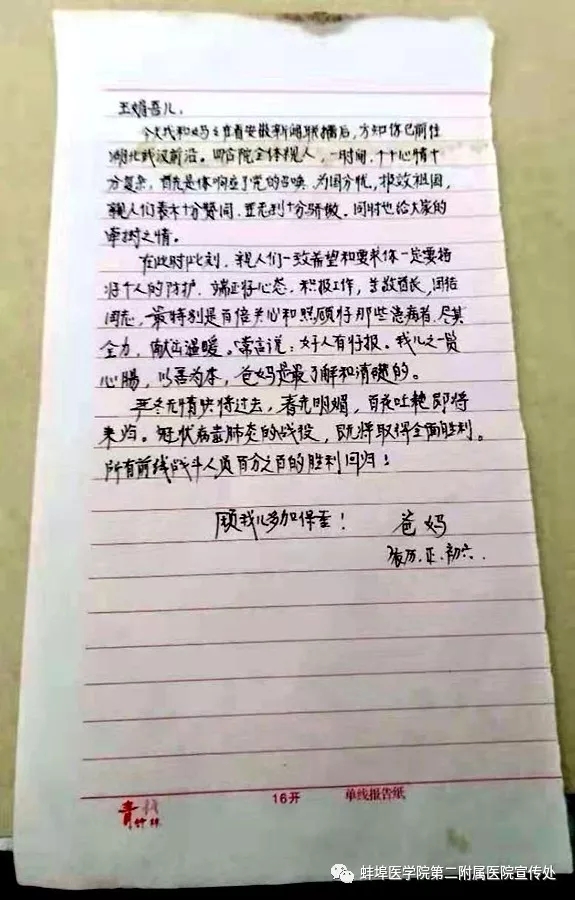 王娟吾儿,
今天我和妈妈在看安徽新闻联播后,方知你已前往
湖北武汉前沿。四合院全体亲人,一时间,十个心情十
分复杂,首先是你响应了党的召唤,为国分忧,报效祖国,
亲人们表示十分赞同,并感到十分骄傲。同时也给大家的
牵挂之情。
在此时此刻,亲人们一致希望和要求你一定要搞
好个人的防护,端正好心态,积极工作,尊敬首长,团结
同志,最特别是百倍关心和照顾好那些患病者,尽其
全力,献出温暖。常言说:好人有好报。我儿之一贯
心腸,以善为本,爸妈是最了解和清楚的。
严冬无情快将过去,春光明媚,百花吐艳即将
来归。冠状病毒肺炎的战役,既将取得全面胜利。
所有前线战斗人员百分之百的胜利回归!
愿我儿多加保重!
爸妈
农历.正.初六.
16开 单线报告纸
蚌埠医学院第二附属医院宣传处